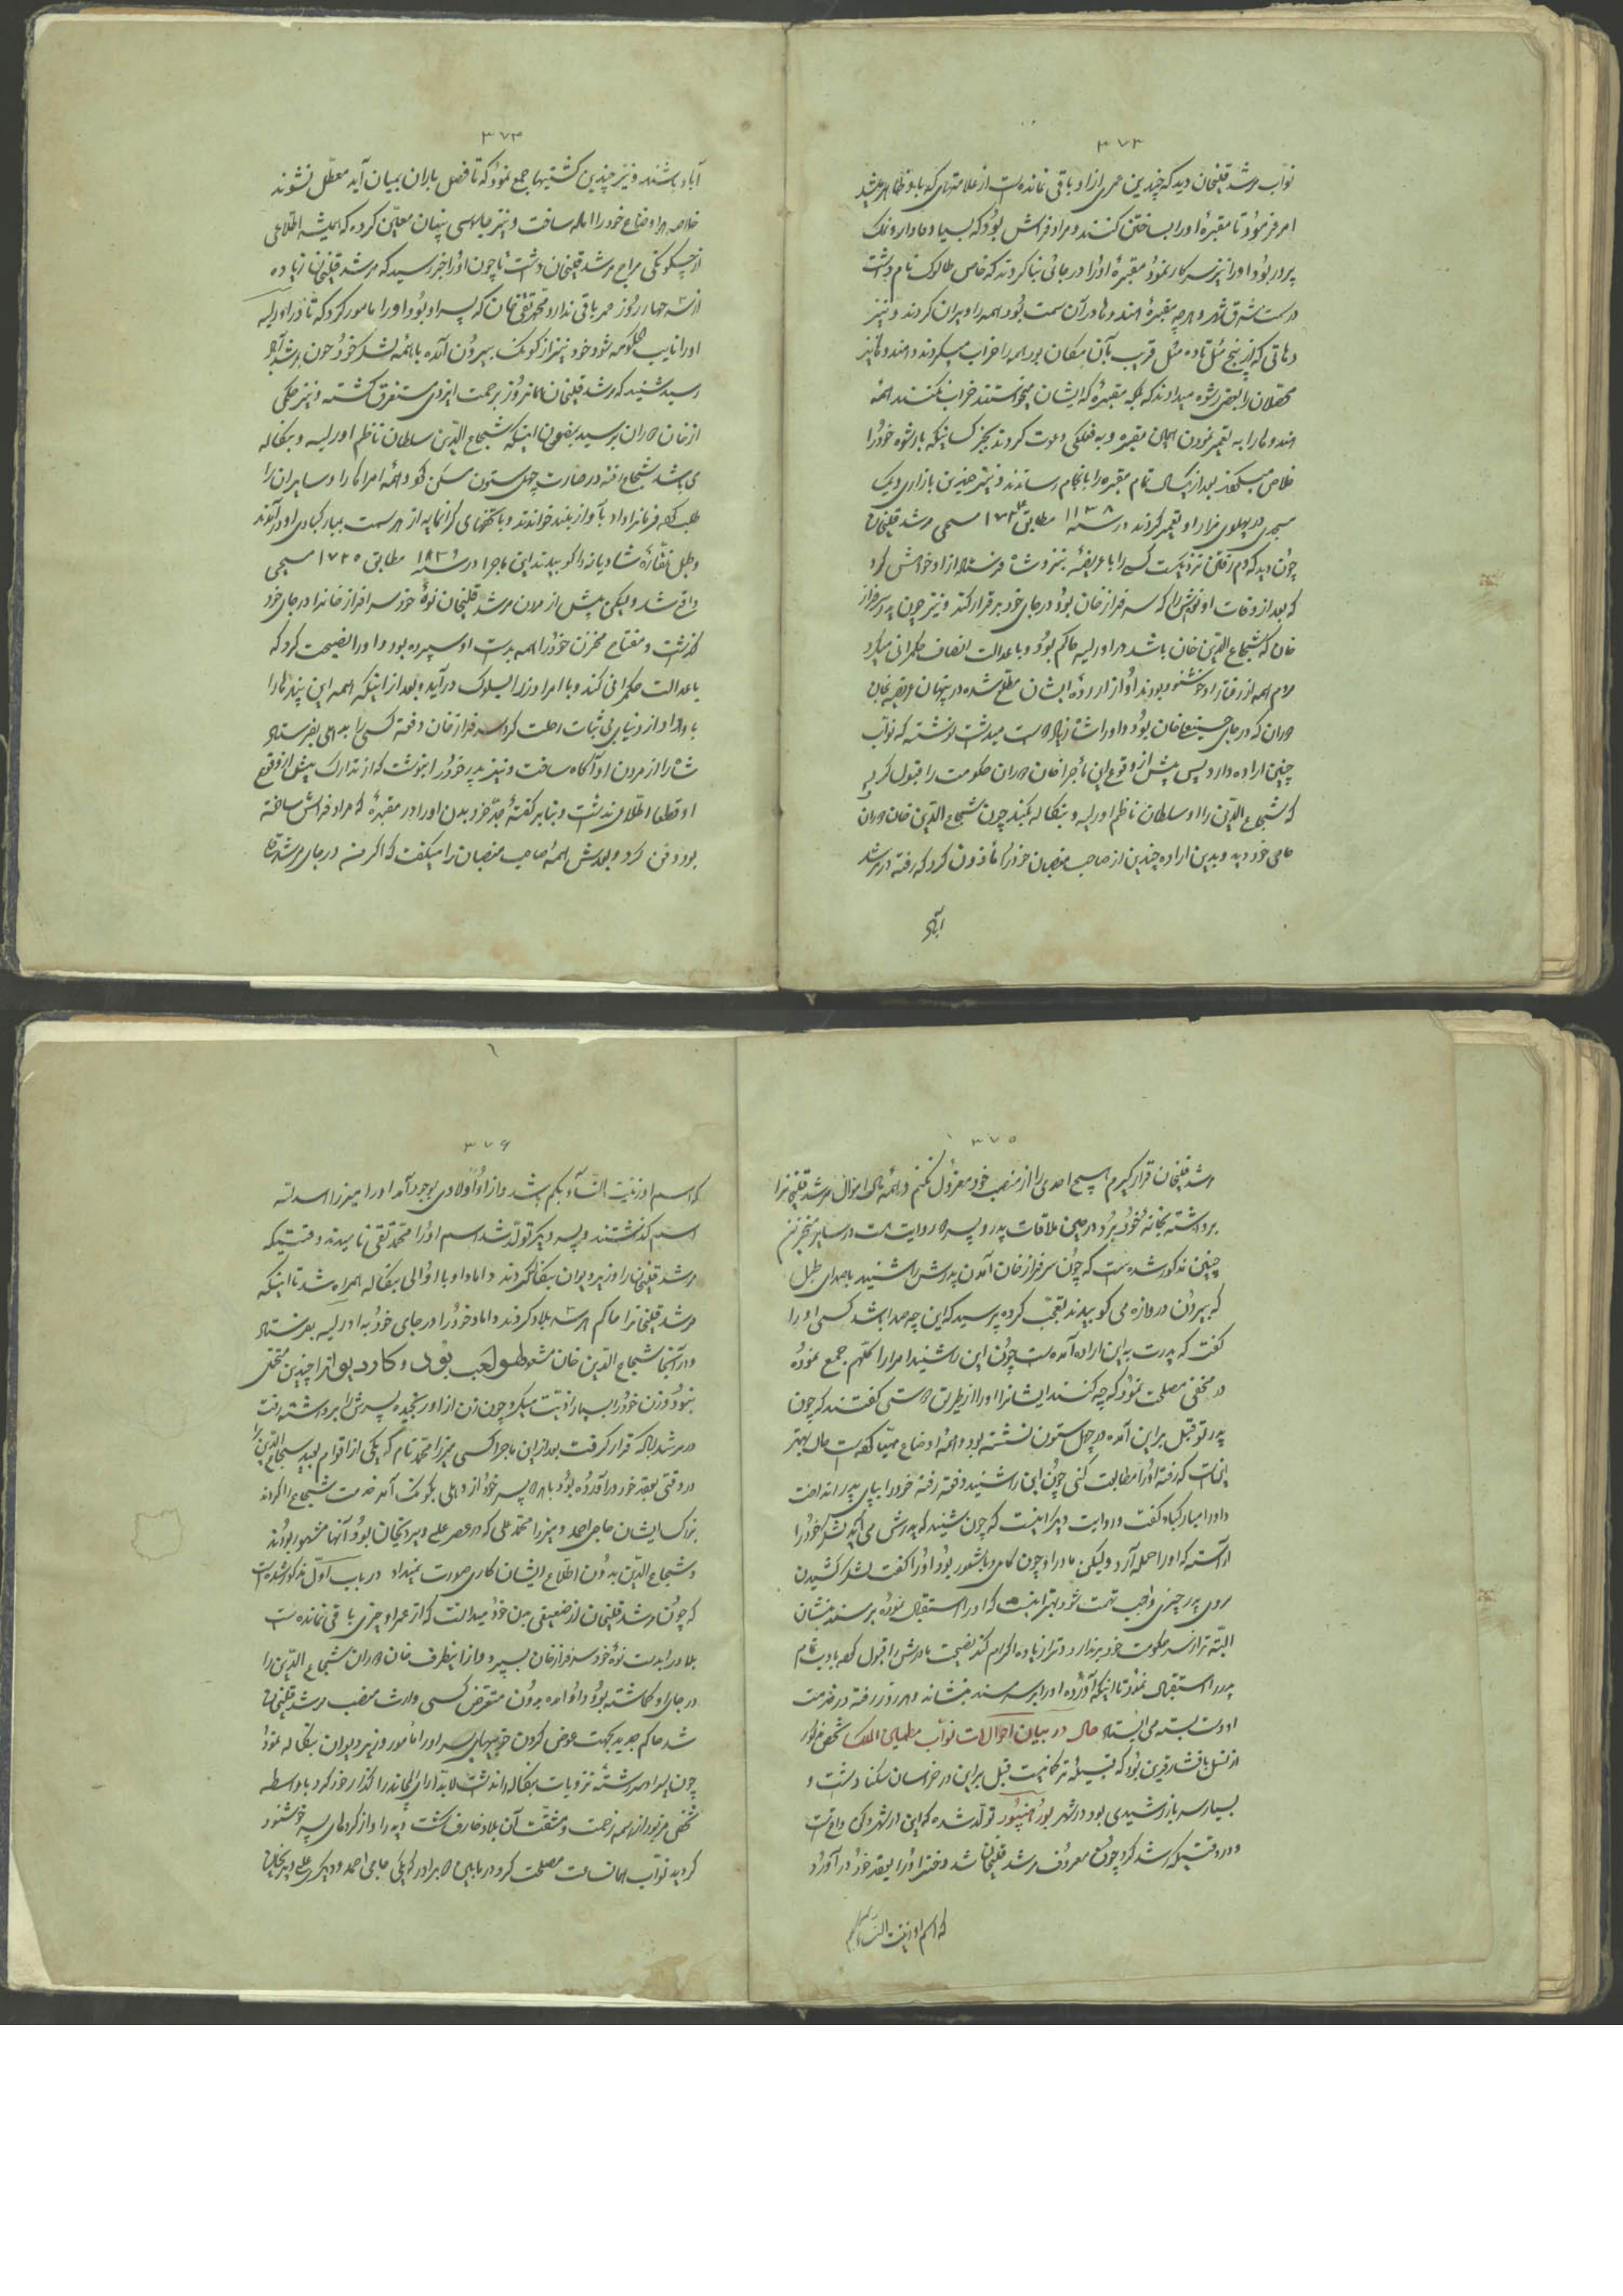 ۳۷۳
نوّاب مرشد قلیخان دید که چندین عمری از او باقی نمانده است از علامتهای که باو ظاهر میشد
امر فرمود تا مقبرهٔ او را بساختن کنند و مراد فراش بود که بسیار وفادار و نمک
پرور بود او را نیز سرکار نمود مقبرهٔ او را در جائی بنا کردند که خاص طالوک نام داشت
در سمت شرق شهر و هر چه مقبرهٔ هندوها در آن سمت بود همه را ویران کردند و نیز
دهاتی که از پنج میل تا ده میل قریب بآن مکان بود همه را خراب میکردند و هندوها نیز
محصّلان را بعضی رشوه میدادند که بلکه مقبرهٔ که ایشان میخواستند خراب نکنند همهٔ
هندوها را به تعمیر نمودن همان مقبره و به فعلگی دعوت کردند بجز کسانیکه با رشوه خود را
خلاص میکردند بعد از یکسال تمام مقبره را بانجام رساندند و نیز چندین بازاری و یک
مسجدی در پهلوی مزار او تعمیر کردند در سنه ۱۱۳۸ مطابق ۱۷۲۴ مسیحی مرشد قلیخان
چون دید که دم رفتن نزدیکست کسی را با عریضهٔ بنزد شاه فرستاد از او خواهش کرد
که بعد از وفات او نوهٔ‌اش را که سرفراز خان بود در جای خود برقرار کند و نیز چون پدر سرفراز
خان که شجاع الدین خان باشد در اورلیه حاکم بود و با عدالت انصاف حکمرانی میکرد
مردم همه از رفتار او خوشنود بودند او از ارادهٔ ایشان مطلع شده در پنهان عریضه بخان
دوران که در جای حسینعلیخان بود و او را شاه زیاد دوست میداشت نوشته که نوّاب
چنین اراده دارد پس پیش از وقوع این ماجرا خان دوران حکومت را قبول کرد
که شجاع الدین را او سلطان ناظم اورلیه و بنگاله بکند چون شجاع الدین خان دوران
حامی خود دید و بدین اراده چندین از صاحب منصبان خود را مأذون کرد که رفته در مرشد
آباد
۳۷۴
آباد باشند و نیز چندین کشتیها جمع نمود که تا فصل باران بمیان آید معطّل نشوند
خلاصه اوضاع خود را آماده ساخت و نیز جاسوسی پنهان معیّن کرده که همیشه اطلاعی
از چگونگی مزاج مرشد قلیخان داشت تا چون او را خبر رسید که مرشد قلیخان زیاده
از سه چهار روز عمر باقی ندارد محمّد تقی خان که پسر او بود او را مامور کرد که تا در اورلیه
او را نایب حکومه شود خود نیز از کوتک بیرون آمده با همهٔ لشکر خود چون بمرشد آباد
رسید شنید که مرشد قلیخان همانروز برحمت ایزدی مستغرق گشته و نیز حکمی
از خان دوران برسید بمضمون اینکه شجاع الدین سلطان ناظم اورلیه و بنگاله
می باشد شجاع رفته در عمارت چهل ستون سکنی نمود و همهٔ امراها را و سایران را
طلب کرده فرمان را داد بآواز بلند خواندند و با تحفهای گرانمایه از هر سمت بمبارکبادی او درآمدند
و طبل نقّارهٔ شادیانه را کوبیدند این ماجرا در سنه ۱۱۳۸ مطابق ۱۷۲۵ مسیحی
واقع شد ولیکن پیش از مردن مرشد قلیخان نوهٔ خود سرافراز خانرا در جای خود
گذاشت و مفتاح مخزن خود را همه بدست او سپرده بود و او را نصیحت کرد که
با عدالت حکمرانی کند و با امرا و زرا بسلوک درآید و بعد از اینکه همه این پندها را
باو داد از دنیای بی ثبات رحلت کرد سرفراز خان دفعة کسی را بدهلی بفرستاد
شاه را از مردن او آگاه ساخت و نیز به پدر خود را بنوشت که از تدارک پیش از وقوع
او قطعا اطلاعی نداشت و بنا بر گفتهٔ جدّ خود بدن او را در مقبرهٔ که مراد فراش ساخته
بود دفن کرد و بعدش همهٔ صاحب منصبان را میگفت که اگر من در جای مرشد قلی
۳۷۵
مرشد قلیخان قرار گیرم هیچ احدی را از منصب خود معزول نکنم و همهٔ مال اموال مرشد قلیخانرا
برداشته بخانهٔ خود ببرد در همین ملاقات پدر و پسر دو روایت است در سایر مخزنین
چنین مذکور شده است که چون سرفراز خان آمدن پدرش را شنید با صدای طبل
که بیرون دروازه می کوبیدند تعجّب کرده پرسید که این چه صدا باشد کسی او را
گفت که پدرت به این اراده آمده است چون این را شنید امرا را کلّهم جمع نموده
در مخفی مصلحت نمود که چه کنند ایشانرا او را از طریق راستی گفتند که چون
پدر تو قبل بر این آمده در چهل ستون نشسته بود و همهٔ اوضاع مهیّا کرده است حال بهتر
اینست که رفته او را مطالبت کنی چون این را شنید دفعة رفته خود را بپای پدر انداخت
و او را مبارکباد گفت و روایت دیگر اینست که چون شنید که پدرش می آید لشکر خود را
آراسته که او را حمله آرد ولیکن مادر او چون کامل و باشعور بود او را گفت لشکر کشیدن
بروی پدر چیزی واجب تهمت شود بهتر اینست که او را استقبال نموده بر مسند بنشان
البتّه تو را از سر حکومت خود برندارد و ترا زیاده اکرام کند نصیحت مادرش را قبول کرده با ادب تمام
پدر را استقبال نمود تا اینکه آورده او را بر سر مسند بنشاند و هر روز رفته در خدمت
او دست بسته می ایستاد حال در بیان احوالات نوّاب معلمیای الملک شخص مزبور
از نسل افشار قرین بود که قبیلهٔ ترکمانیست قبل بر این در خراسان سکنا داشت و
بسیار سرباز رشیدی بود در شهر بورهنپور تولّد شده که این در شهر دکن واقعست
و در وقتیکه رشد کرد چون معروف مرشد قلیخان شد دختر او را بعقد خود در آورد
که اسم او زینت النساء بیکم
۳۷۶
که اسم او زینت النّسآء بیکم باشد و از او اولادی بوجود آمد او را میرزا اسد الله
اسم گذاشتند و پسر دیگر تولّد شد اسم او را محمّد تقی نامیدند وقتیکه
مرشد قلیخان را وزیر دیوان بنگاله کردند داماد او با اوّالی بنگاله همراه شد تا اینکه
مرشد قلیخانرا حاکم هر سه بلاد کردند و داماد خود را در جای خود به اورلیه بفرستاد
و در آنجا شجاع الدین خان مشهو لهو لعب بود و کارد یوانرا چندین متحق
ننمود و زن خود را بسیار اذیّت میکرد چون زن از او رنجیده پسرش را برداشته رفت
در مرشداباد قرار گرفت بعد از این ماجرا کسی میرزا محمّد نام که یکی از اقوام بعید شجاع الدین را
در وقتی بعقد خود در آورده بود با دو پسر خود از دهلی بکوتک آمد خدمت شجاع را کردند
بزرگ ایشان حاجی احمد و میرزا محمّد علی که در عصر علی ویردیخان بود آنها مشهور بودند
و شجاع الدین بدون اطلاع ایشان کاری صورت نمیداد در باب اوّل مذکور شده است
که چون مرشد قلیخان از ضعیفی بدن خود میدانست که از عمر او چیزی باقی نمانده است
بلاد را بدست نوهٔ خود سرفراز خان بسپرد و از اینطرف خان دوران شجاع الدّین را
در جای او گماشته بود و او آمده بدون متعرّض کسی وارث منصب مرشد قلیخان
شد حاکم جدید بجهت عوض کردن خوبیهای پسر او را مأمور وزیر دیوان بنگاله نمود
چون پسر او سررشتهٔ ترتیبات بنگاله را نداشت لابد آرای رایخانرا گذار خود کرد با واسطه
شخص مزبور از همه زحمت و مشقّت آن بلاد فارغ گشت و پدر او از کردهای پسر خوشنود
گردید نوّاب همان ساعت مصلحت کرد در مابین دو برادر که یکی حاجی احمد و دیگری علی ویردیخان